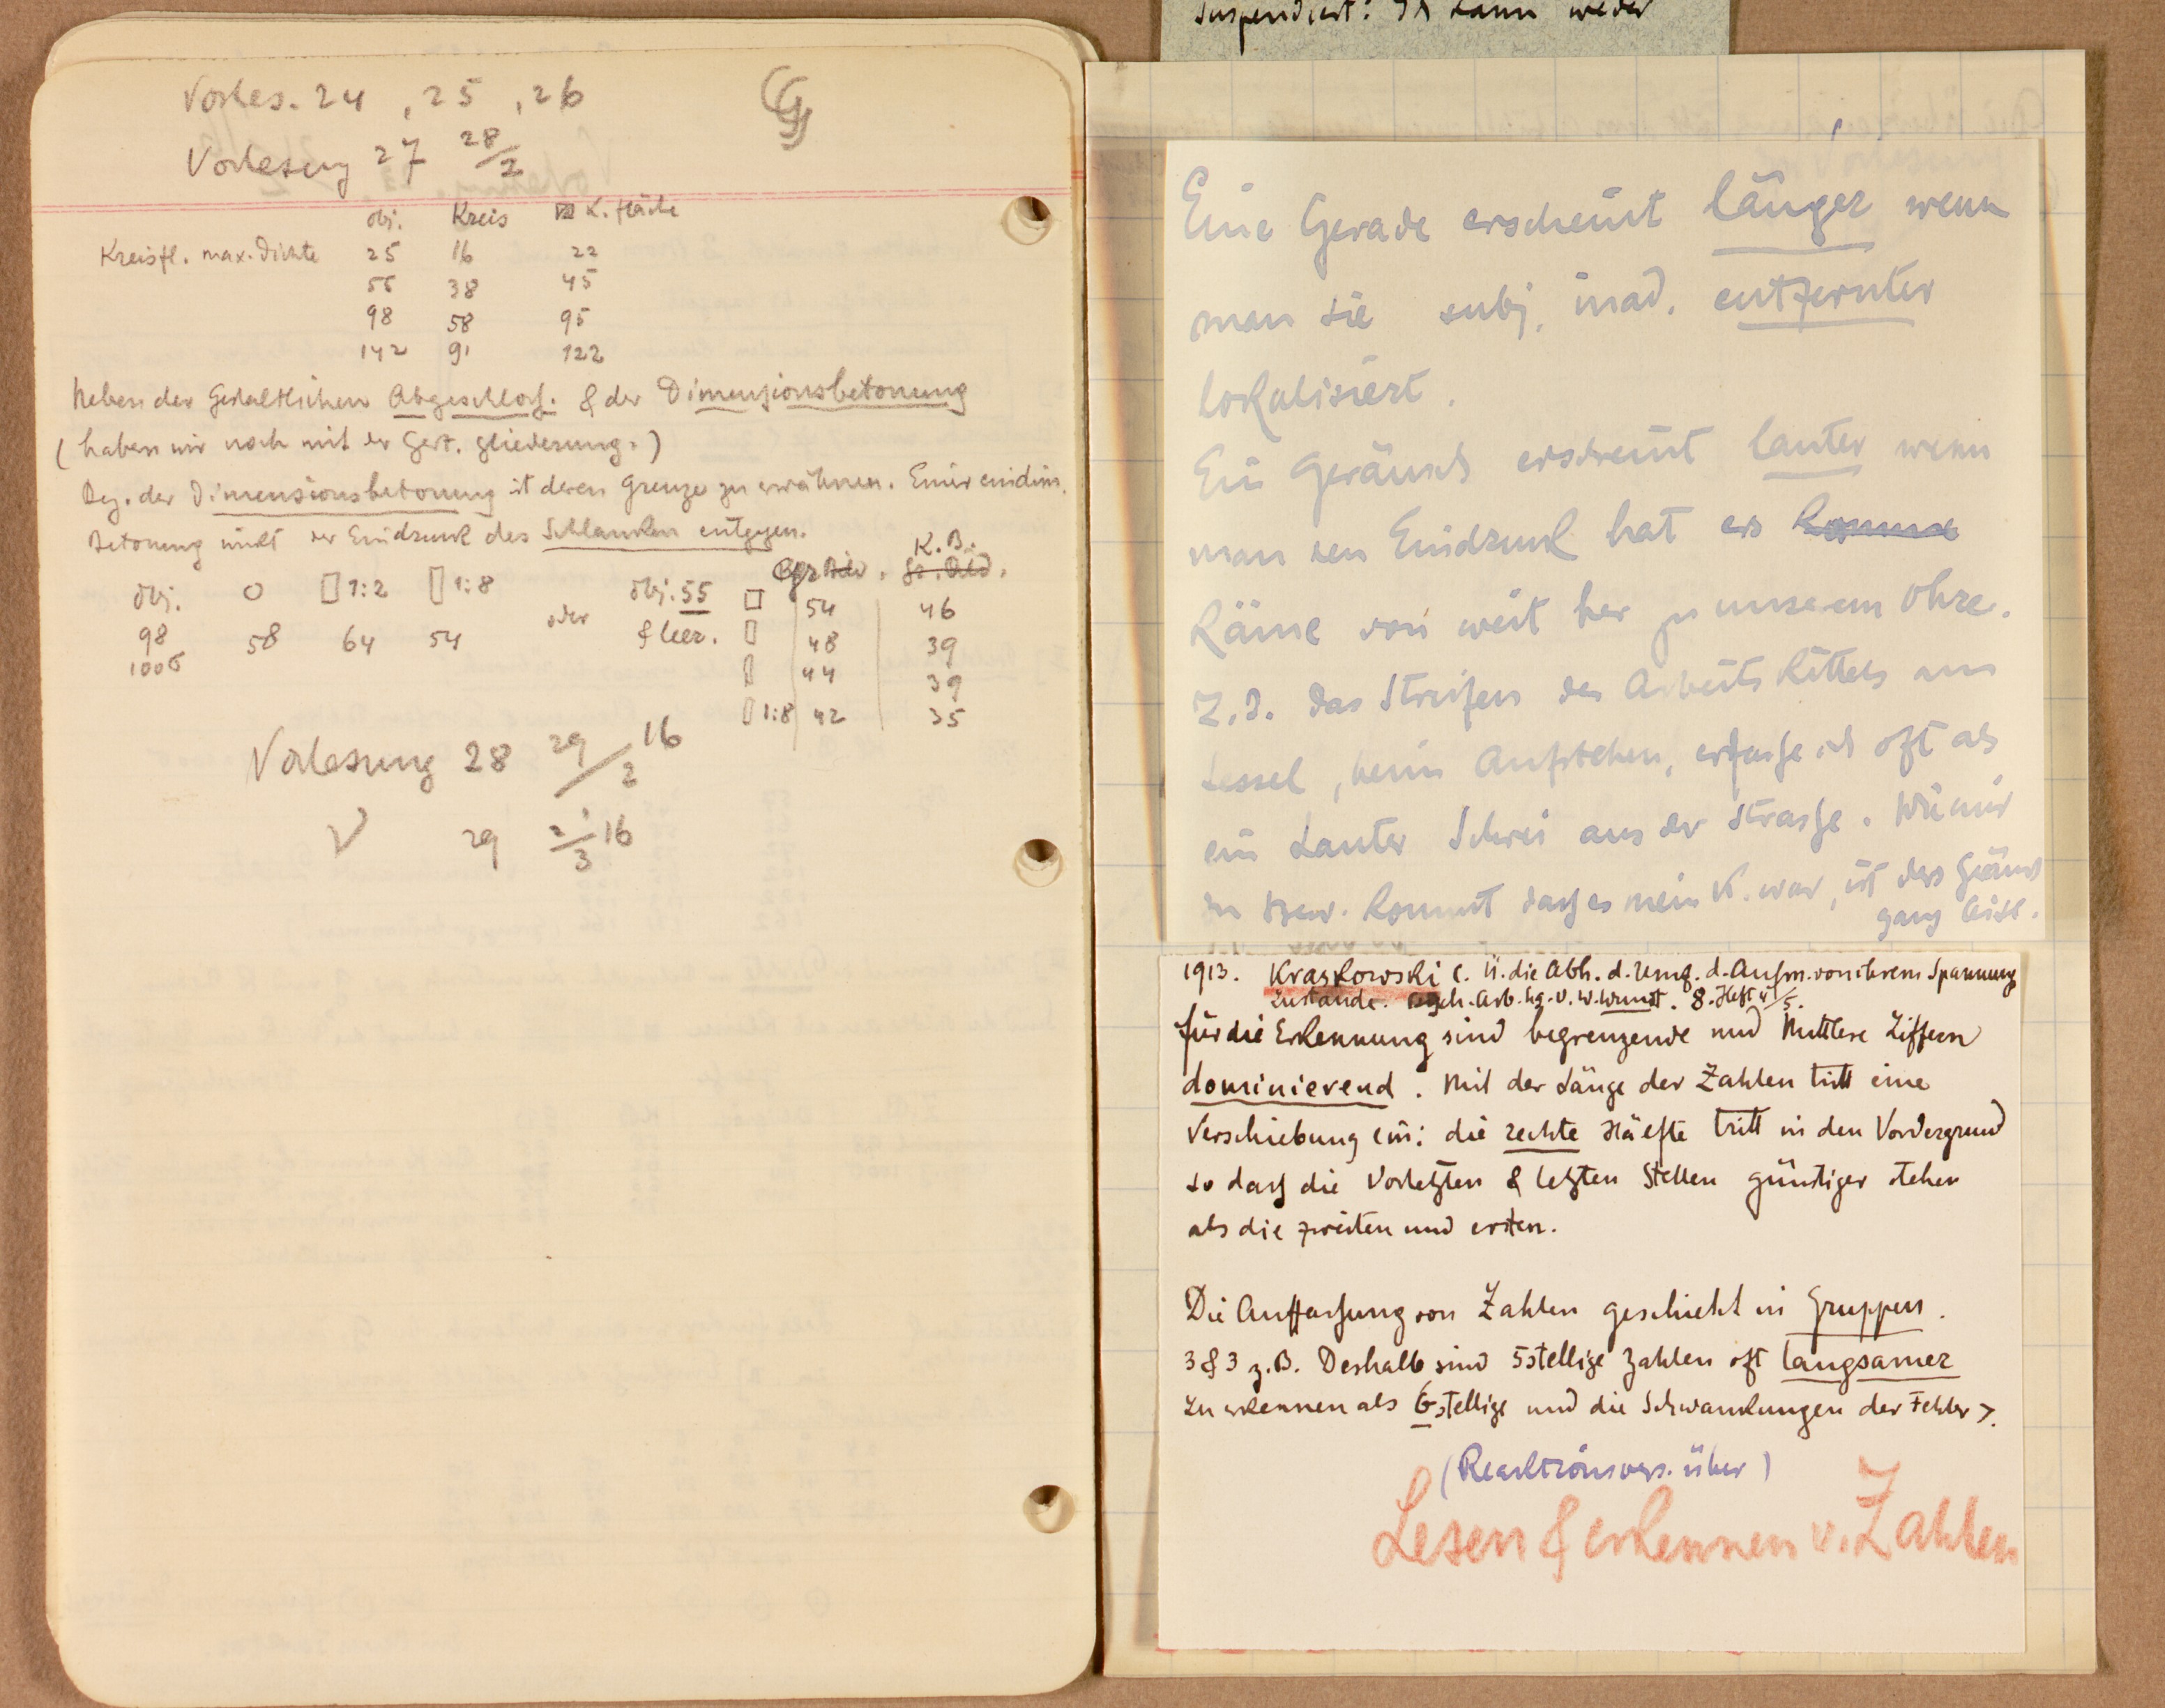 Vorles. 24, 25, 26
Vorlesung 27 28/2
obj. Kreis K. fläche
Kreisfl. max. Dichte 25 16 22
55 38 45
98 58 95
142 91 122
Neben der Gestaltlichen Abgeschloss. & der Dimensionsbetonung
(haben wir noch mit der Gest. gliederung.)
Bez. der Dimensionsbetonung ist deren Grenze zu erwähnen. Einer eindim.
Betonung wirkt der Eindruck des Schlanken entgegen.
K. B.
obj. O ▯ 1:2 ▯ 1:8 oder obj. 55 & leer.
98 58 64 54
100σ
□ 54 46
▯ 48 39
▯ 44 39
▯ 1:8 42 35
Vorlesung 28 29/2 16
V 29 2/3 16
suspendiert: Ich kann weder
Eine Gerade erscheint länger wenn
man sie subj. inad. entfernter
lokalisiert.
Ein Geräusch erscheint lauter wenn
man den Eindruck hat es komme
käme von weit her zu unserem Ohre.
Z.B. das Streifen des Arbeits Kittels am
Sessel, beim Aufstehen, erfasse ich oft als
ein lauter Schrei aus der Strasse. Wie mir
zu Bew. kommt dass es mein K. war, ist das Geräusch
ganz leise.
1913. Kraskowski C. Ü. die Abh. d. Umf. d. Aufm. von ihrem Spannung
zustande. Psych. Arb. hg. v. W. Wundt. 8. Heft 4/5.
für die Erkennung sind begrenzende und Mittlere Ziffern
dominierend. Mit der Länge der Zahlen tritt eine
Verschiebung ein: die rechte Hälfte tritt in den Vordergrund
so dass die Vorletzten & letzten Stellen günstiger stehen
als die zweiten und ersten.
Die Auffassung von Zahlen geschieht in Gruppen.
3&3 z.B. Deshalb sind 5stellige Zahlen oft langsamer
zu erkennen als 6stellige und die Schwankungen der Fehler >.
(Reaktionsvers. über)
Lesen & erkennen v. Zahlen